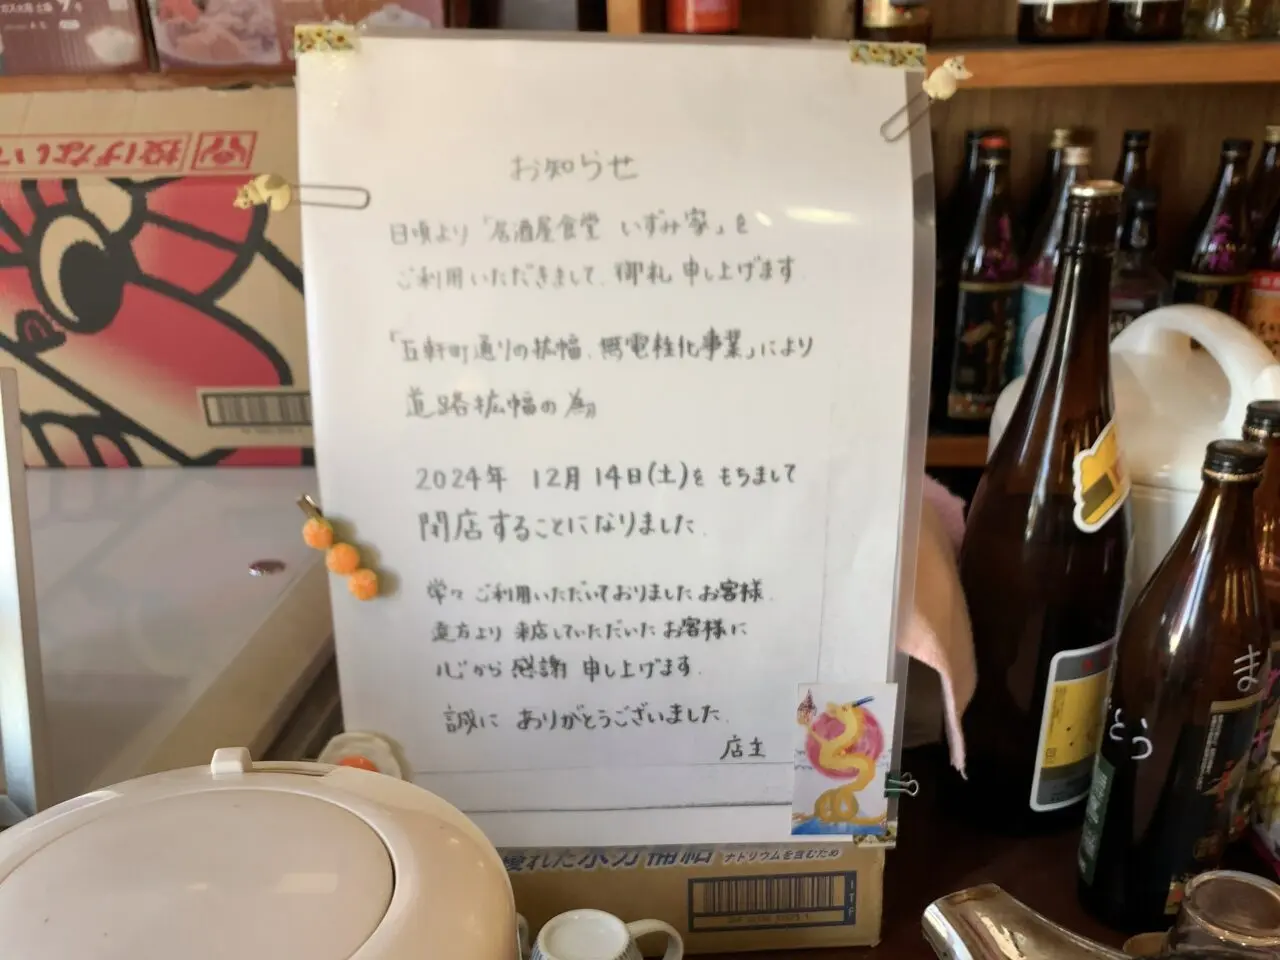 お知らせ
日頃より「居酒屋食堂 いずみ家」を
ご利用いただきまして、御礼 申し上げます
「五軒町通りの拡幅、無電柱化事業」により
道路拡幅の為
2024年 12月 14日(土)を もちまして
閉店することになりました。
常々 ご利用いただいておりましたお客様、
遠方より 来店していただいた お客様に
心から 感謝 申し上げます。
誠に ありがとうございました。
店主
投げない
優れた水分補給 ナトリウムを含むため
ITF